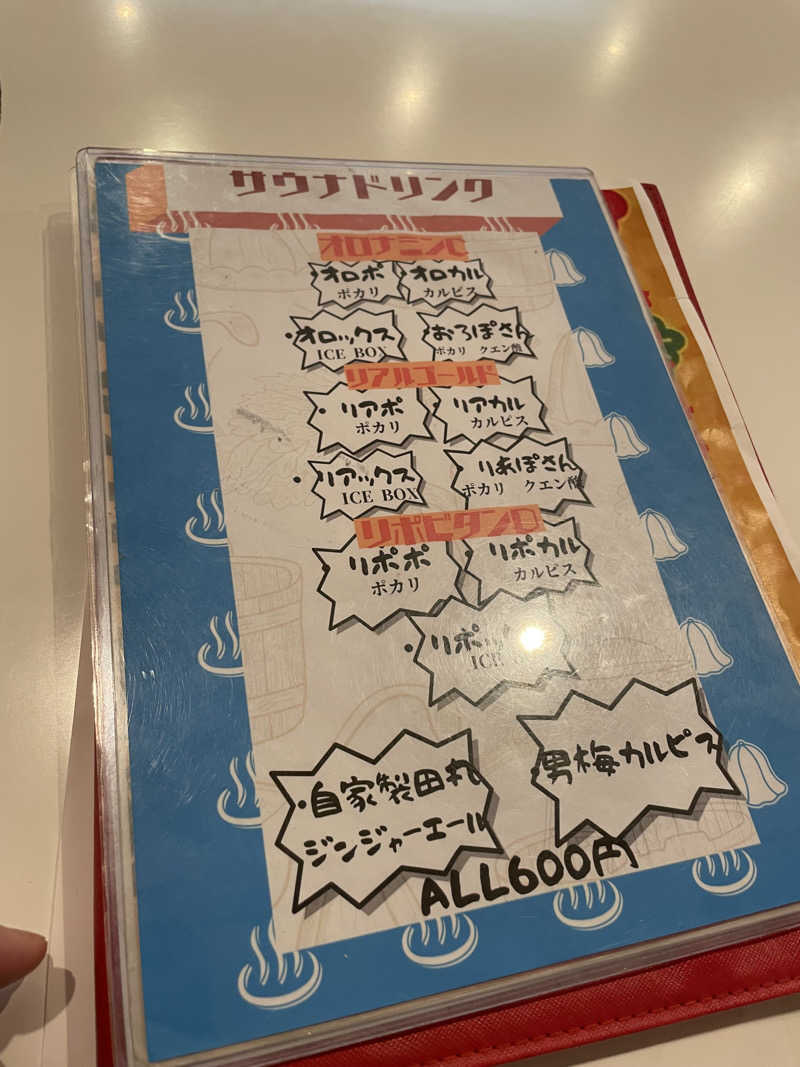 サウナドリンク
オロナミンC
・オロポ ・オロカル
ポカリ カルピス
・オロックス ・おろぽさん
ICE BOX ポカリ クエン酸
リアルゴールド
・リアポ ・リアカル
ポカリ カルピス
・リアックス ・りあぽさん
ICE BOX ポカリ クエン酸
リポビタンD
・リポポ ・リポカル
ポカリ カルピス
・リポッ
ICE
・自家製田丸 ・男梅カルピス
ジンジャーエール
ALL600円